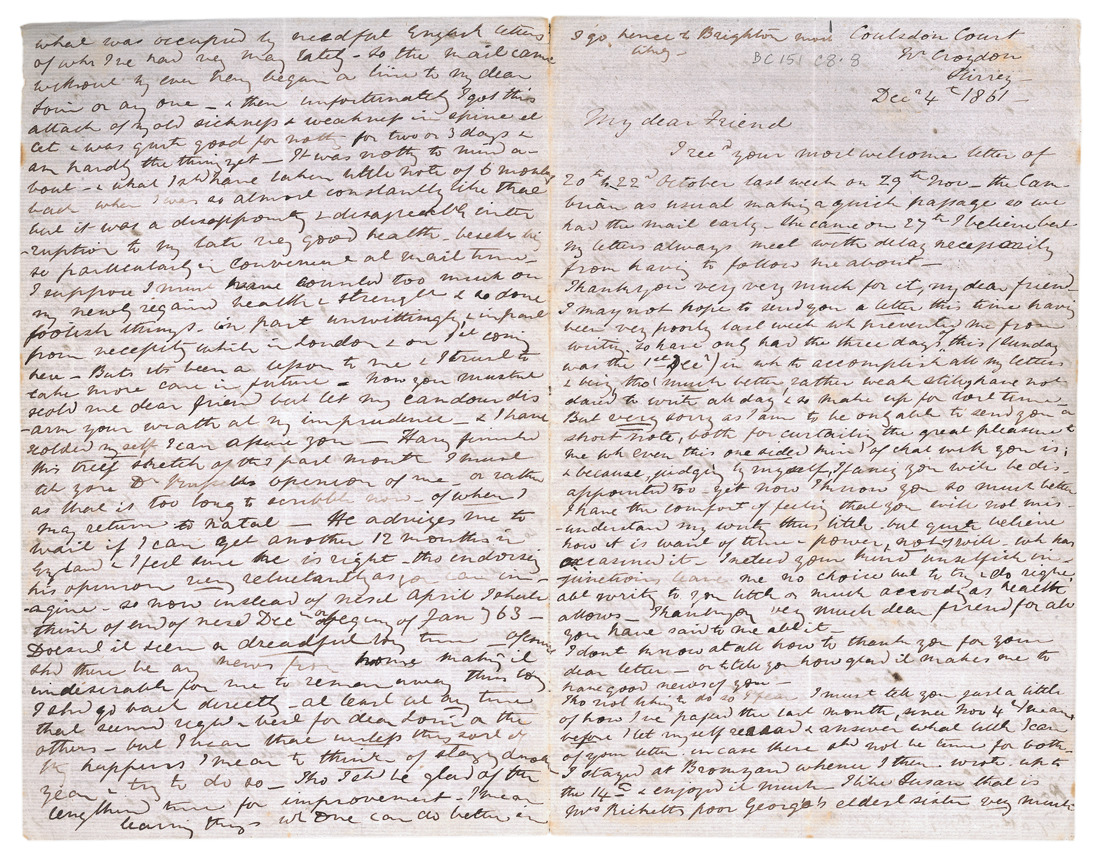 I go hence to Brighton most
likely -
BC151 C8.8
Coulsdon Court
Nr Croydon
Surrey -
Decr 4th 1861 -
My dear Friend
I recd your most welcome letter of
20th to 22d October last week on 29th Nov - the Cam-
brian as usual making a quick passage so we
had the mail early - she came on 27th I believe but
my letters always meet with delay necessarily
from having to follow me about -
Thank you very very much for it, my dear friend
I may not hope to send you a letter this time having
been very poorly last week wh prevented me from
writing so have only had the three days this (Sunday
was the 1st Decr) in wh to accomplish all my letters
& being tho' much better rather weak still, have not
dared to write all day & so make up for lost time -
But very sorry as I am to be only able to send you a
short note, both for curtailing the great pleasure to
me wh even this one sided kind of chat with you is;
& because, judging by myself, I fancy you will be dis-
appointed too - yet now I know you so much better
I have the comfort of feeling that you will not mis-
-understand my writing thus little - but quite believe
how it is want of time & power, not will - wh has
occasioned it - Indeed your kind unselfish in-
junctions leave me no choice but to try & do right
able write to you little or much according as health
allows - Thank you very much dear friend for all
you have said to me abt it.
I dont know at all how to thank you for your
dear letter - or to tell you how glad it makes me to
have good news of you -
Tho' not liking to do so I must tell you just a little
of how I've passed the last month, since Nov 4th I mean
before I let myself read & answer what little I can
of your letter, in case there shd not be time for both -
I stayed at Bromyard whence I then wrote - up to
the 14th & enjoyed it much - I like Susan that is
Mrs Ricketts poor George's eldest sister very much
what was occupied by needful English letters
of wh I've had very many lately - so the mail came
without my even having begun a line to my dear
Louie or any one - & then unfortunately I got this
attack of my old sickness & weakness in spine etc
etc & was quite good for nothg for two or 3 days &
am hardly the thing yet - It was nothg to mind a-
bout - & what I shd have taken little note of 6 months
back when I was so almost constantly like that
but it was a disappointg & disagreeable inter
-ruption to my late very good health - besides being
so particularly inconvenient at mail time -
I suppose I must have counted too much on
my newly regained health & strength & so done
foolish things - in part unwittingly & in part
from necessity while in London & on 1st coming
here - But its been a lesson to me & I trust to
take more care in future - Now you mustnt
scold me dear friend but let my candour dis
-arm your wrath at my imprudence - & I have
scolded myself I can assure you - Having finished
this brief sketch of this past month I must
tell you Dr opinion of me - or rather
as that is too long to scribble now - of when I
may return to Natal - He advises me to
wait if I can yet another 12 months in
England & I feel sure he is right - tho' endorsing
his opinion very reluctantly as you can im-
-agine - so now instead of next April I shall
think of end of next Decr or begng of Jan) 63 -
Doesnt it seem a dreadful long time of course
shd there be any news from home making it
undesirable for me to remain away thus long
I shd go back directly - at least at any time
that seemed right & best for dear Louie or the
others - but I hear that unless this sort of
thg happens I mean to think of staying another
year & try to do so - Tho' I shd be glad of the
lengthened time for improvement - I mean
learning things wh one can do better in